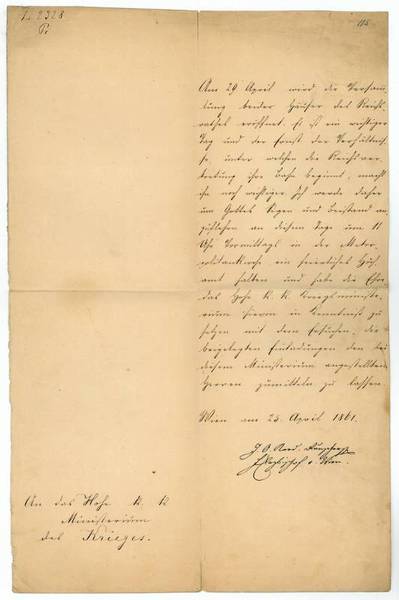 2328
Pr
115
Am 29 April wird die Versam
lung beider Häuser des Reichs
rathes eröffnet. Es ist ein wichtiger
Tag und der Ernst der Verhältnis
se, unter welchen die Reichsver
tretung ihre Bahn beginnt, macht
ihn noch wichtiger. Ich werde daher
um Gottes Segen und Beistand an
zuflehen an diesem Tage um 11
Uhr Vormittags in der Metro
politankirche ein feierliches Hoch
amt halten und habe die Ehre
das Hohe K. K. Kriegsministe
rium hievon in Kenntniß zu
setzen mit dem Ersuchen, die
beigelegten Einladungen den bei
diesem Ministerium angestellten
Herren zumitteln zu lassen.
Wien am 25. April 1861.
J. O. Card. Rauscher
Erzbischof v. Wien.
An das Hohe K. K.
Ministerium
des Krieges.